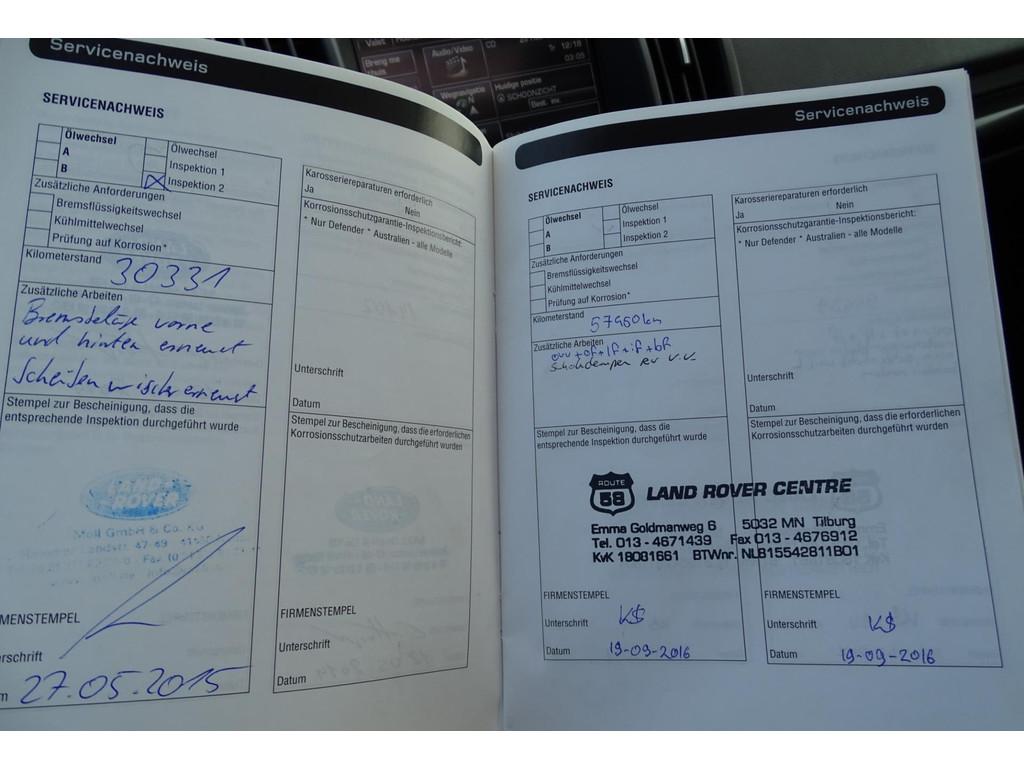 Valet
Audio/Video
CD
Tr 12/18
03:05
Breng me
thuis
Wegnavigatie
N
Huidige positie
SCHOONZICHT
Best. inv.
Servicenachweis
SERVICENACHWEIS
Ölwechsel
A
B
Ölwechsel
Inspektion 1
Inspektion 2
Zusätzliche Anforderungen
Bremsflüssigkeitswechsel
Kühlmittelwechsel
Prüfung auf Korrosion*
Kilometerstand
30331
Zusätzliche Arbeiten
Bremsbeläge vorne
und hinten erneuert
Scheibenwischer erneuert
Stempel zur Bescheinigung, dass die
entsprechende Inspektion durchgeführt wurde
LAND
ROVER
Moll GmbH & Co. KG
47-49
Fax
FIRMENSTEMPEL
27.05.2015
Karosseriereparaturen erforderlich
Ja Nein
Korrosionsschutzgarantie-Inspektionsbericht:
* Nur Defender * Australien - alle Modelle
Unterschrift
Datum
Stempel zur Bescheinigung, dass die erforderlichen
Korrosionsschutzarbeiten durchgeführt wurden
FIRMENSTEMPEL
Unterschrift
Datum
Servicenachweis
SERVICENACHWEIS
Ölwechsel
A
B
Ölwechsel
Inspektion 1
Inspektion 2
Zusätzliche Anforderungen
Bremsflüssigkeitswechsel
Kühlmittelwechsel
Prüfung auf Korrosion*
Kilometerstand
57960km
Zusätzliche Arbeiten
+ of + lf + if + bf
V.V.
Stempel zur Bescheinigung, dass die
entsprechende Inspektion durchgeführt wurde
Karosseriereparaturen erforderlich
Ja Nein
Korrosionsschutzgarantie-Inspektionsbericht:
* Nur Defender * Australien - alle Modelle
Unterschrift
Datum
Stempel zur Bescheinigung, dass die erforderlichen
Korrosionsschutzarbeiten durchgeführt wurden
ROUTE
58
LAND ROVER CENTRE
Emma Goldmanweg 6 5032 MN Tilburg
Tel. 013 - 4671439 Fax 013 - 4676912
KvK 18081661 BTWnr. NL815542811B01
FIRMENSTEMPEL
Unterschrift KS
Datum 19-09-2016
FIRMENSTEMPEL
Unterschrift KS
Datum 19-09-2016